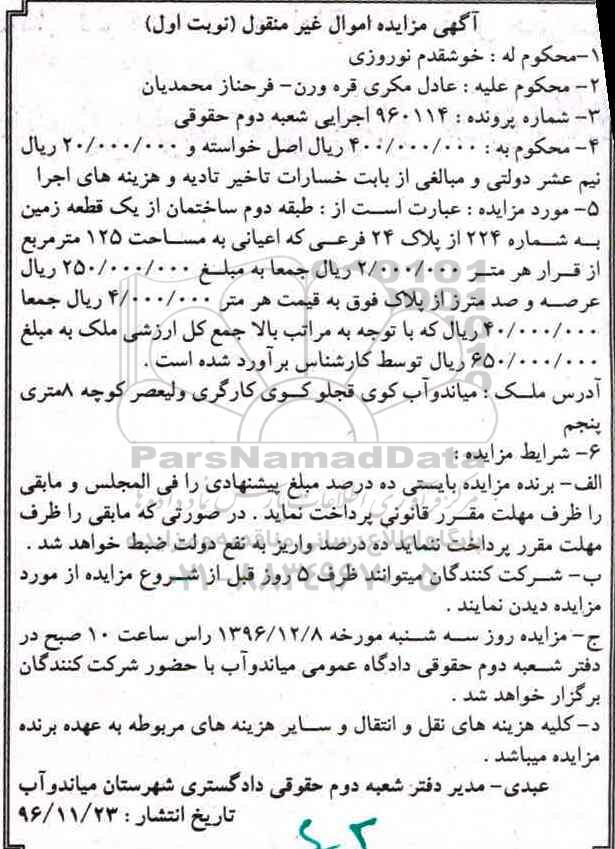 آگهی مزایده اموال غیر منقول (نوبت اول)
۱-محکوم له : خوشقدم نوروزی
۲- محکوم علیه : عادل مکری قره ورن- فرحناز محمدیان
۳- شماره پرونده : ۹۶۰۱۱۴ اجرایی شعبه دوم حقوقی
۴- محکوم به : ۴۰۰/۰۰۰/۰۰۰ ریال اصل خواسته و ۲۰/۰۰۰/۰۰۰ ریال
نیم عشر دولتی و مبالغی از بابت خسارات تاخیر تادیه و هزینه های اجرا
۵- مورد مزایده : عبارت است از : طبقه دوم ساختمان از یک قطعه زمین
به شماره ۲۲۴ از پلاک ۲۴ فرعی که اعیانی به مساحت ۱۲۵ مترمربع
از قرار هر متر ۲/۰۰۰/۰۰۰ ریال جمعا به مبلغ ۲۵۰/۰۰۰/۰۰۰ ریال
عرصه و صد مترز از پلاک فوق به قیمت هر متر ۴/۰۰۰/۰۰۰ ریال جمعا
۴۰/۰۰۰/۰۰۰ ریال که با توجه به مراتب بالا جمع کل ارزشی ملک به مبلغ
۶۵۰/۰۰۰/۰۰۰ ریال توسط کارشناس برآورد شده است .
آدرس ملک : میاندوآب کوی قجلو کوی کارگری ولیعصر کوچه ۸متری
پنجم
ParsNamadData
۶- شرایط مزایده :
الف- برنده مزایده بایستی ده درصد مبلغ پیشنهادی را فی المجلس و مابقی
را ظرف مهلت مقرر قانونی پرداخت نماید . در صورتی که مابقی را ظرف
مهلت مقرر پرداخت ننماید ده درصد واریز به نفع دولت ضبط خواهد شد .
ب- شرکت کنندگان میتوانند ظرف ۵ روز قبل از شروع مزایده از مورد
مزایده دیدن نمایند .
ج- مزایده روز سه شنبه مورخه ۱۳۹۶/۱۲/۸ راس ساعت ۱۰ صبح در
دفتر شعبه دوم حقوقی دادگاه عمومی میاندوآب با حضور شرکت کنندگان
برگزار خواهد شد .
د- کلیه هزینه های نقل و انتقال و سایر هزینه های مربوطه به عهده برنده
مزایده میباشد .
عبدی- مدیر دفتر شعبه دوم حقوقی دادگستری شهرستان میاندوآب
تاریخ انتشار : ۹۶/۱۱/۲۳